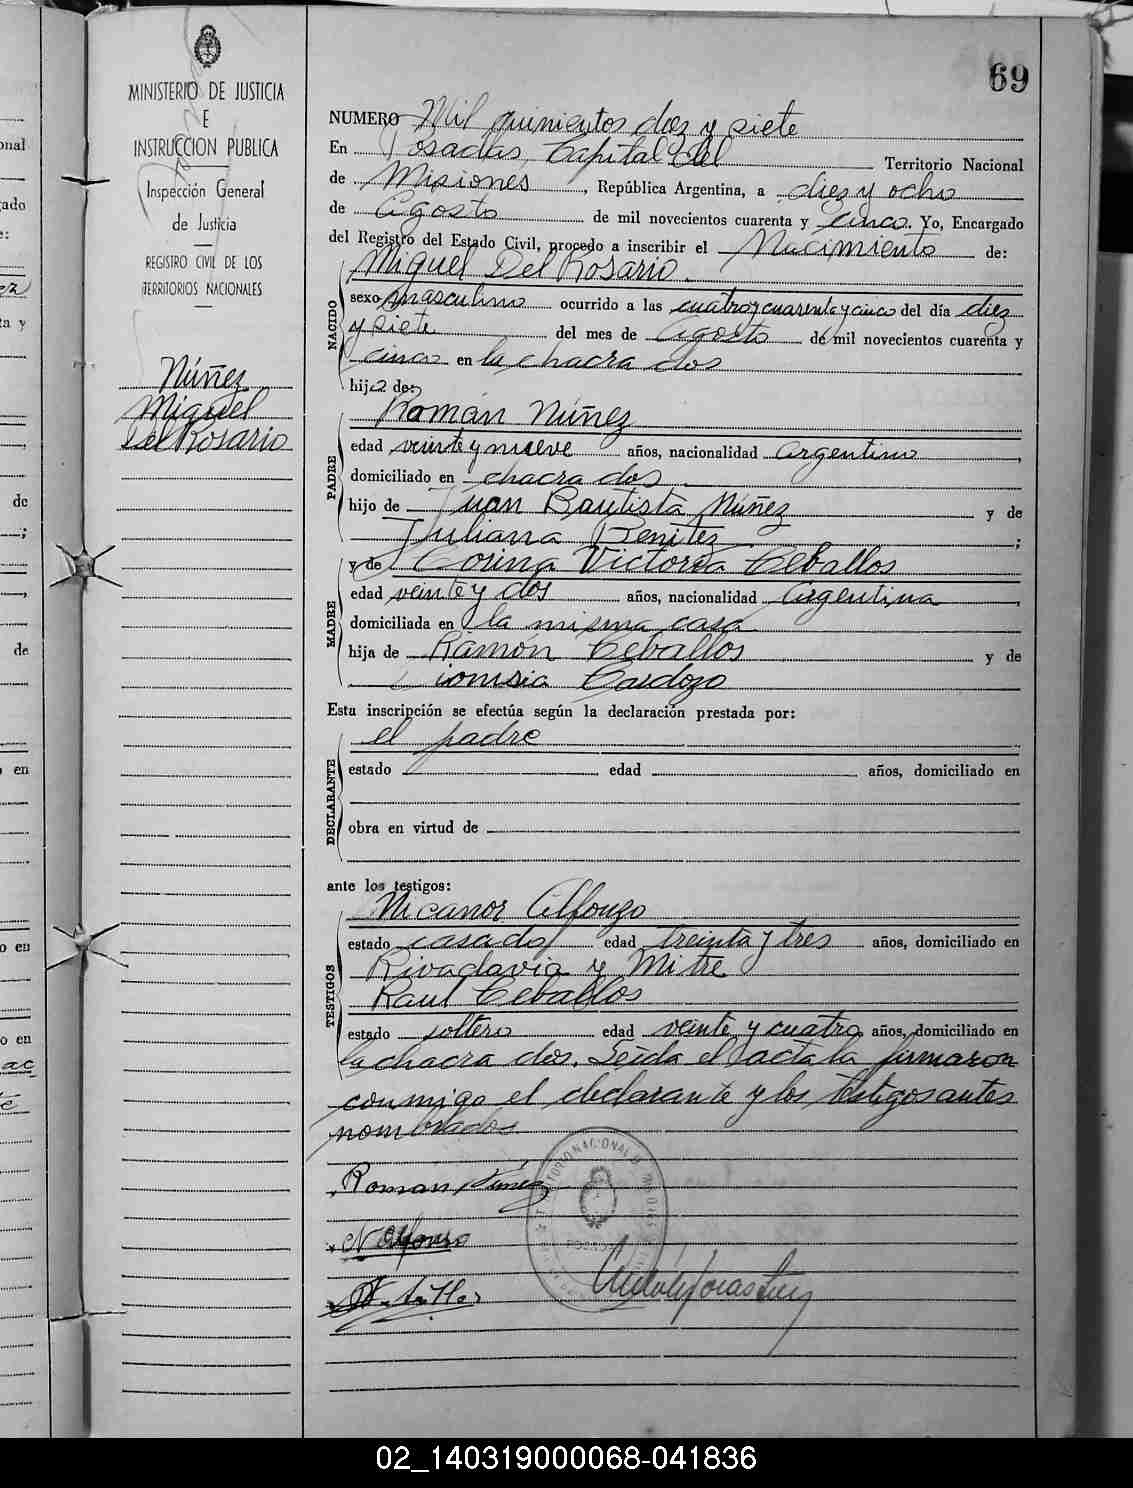 69
MINISTERIO DE JUSTICIA
E
INSTRUCCION PUBLICA
Inspección General
de Justicia
REGISTRO CIVIL DE LOS
TERRITORIOS NACIONALES
Núñez
Miguel
Del Rosario
NUMERO Mil quinientos diez y siete
En Posadas, Capital del Territorio Nacional
de Misiones, República Argentina, a diez y ocho
de Agosto de mil novecientos cuarenta y cinco. Yo, Encargado
del Registro del Estado Civil, procedo a inscribir el Nacimiento de:
Miguel Del Rosario
NACIDO
sexo masculino ocurrido a las cuatro y cuarenta y cinco del día diez
y siete del mes de Agosto de mil novecientos cuarenta y
cinco en la chacra dos
hijo de:
Román Núñez
PADRE
edad veinte y nueve años, nacionalidad argentino,
domiciliado en chacra dos
hijo de Juan Bautista Núñez y de
Juliana Benítez;
y de Corina Victoria Ceballos
MADRE
edad veinte y dos años, nacionalidad Argentina,
domiciliada en la misma casa
hija de Ramón Ceballos y de
Dionisia Cardozo
Esta inscripción se efectúa según la declaración prestada por:
el padre
DECLARANTE
estado edad años, domiciliado en
obra en virtud de
ante los testigos:
Nicanor Alfonzo
TESTIGOS
estado casado edad treinta y tres años, domiciliado en
Rivadavia y Mitre
Raul Ceballos
estado soltero edad veinte y cuatro años, domiciliado en
la chacra dos. Leída el acta la firmaron
conmigo el declarante y los testigos antes
nombrados
Roman Núñez
N Alfonso
02_140319000068-041836